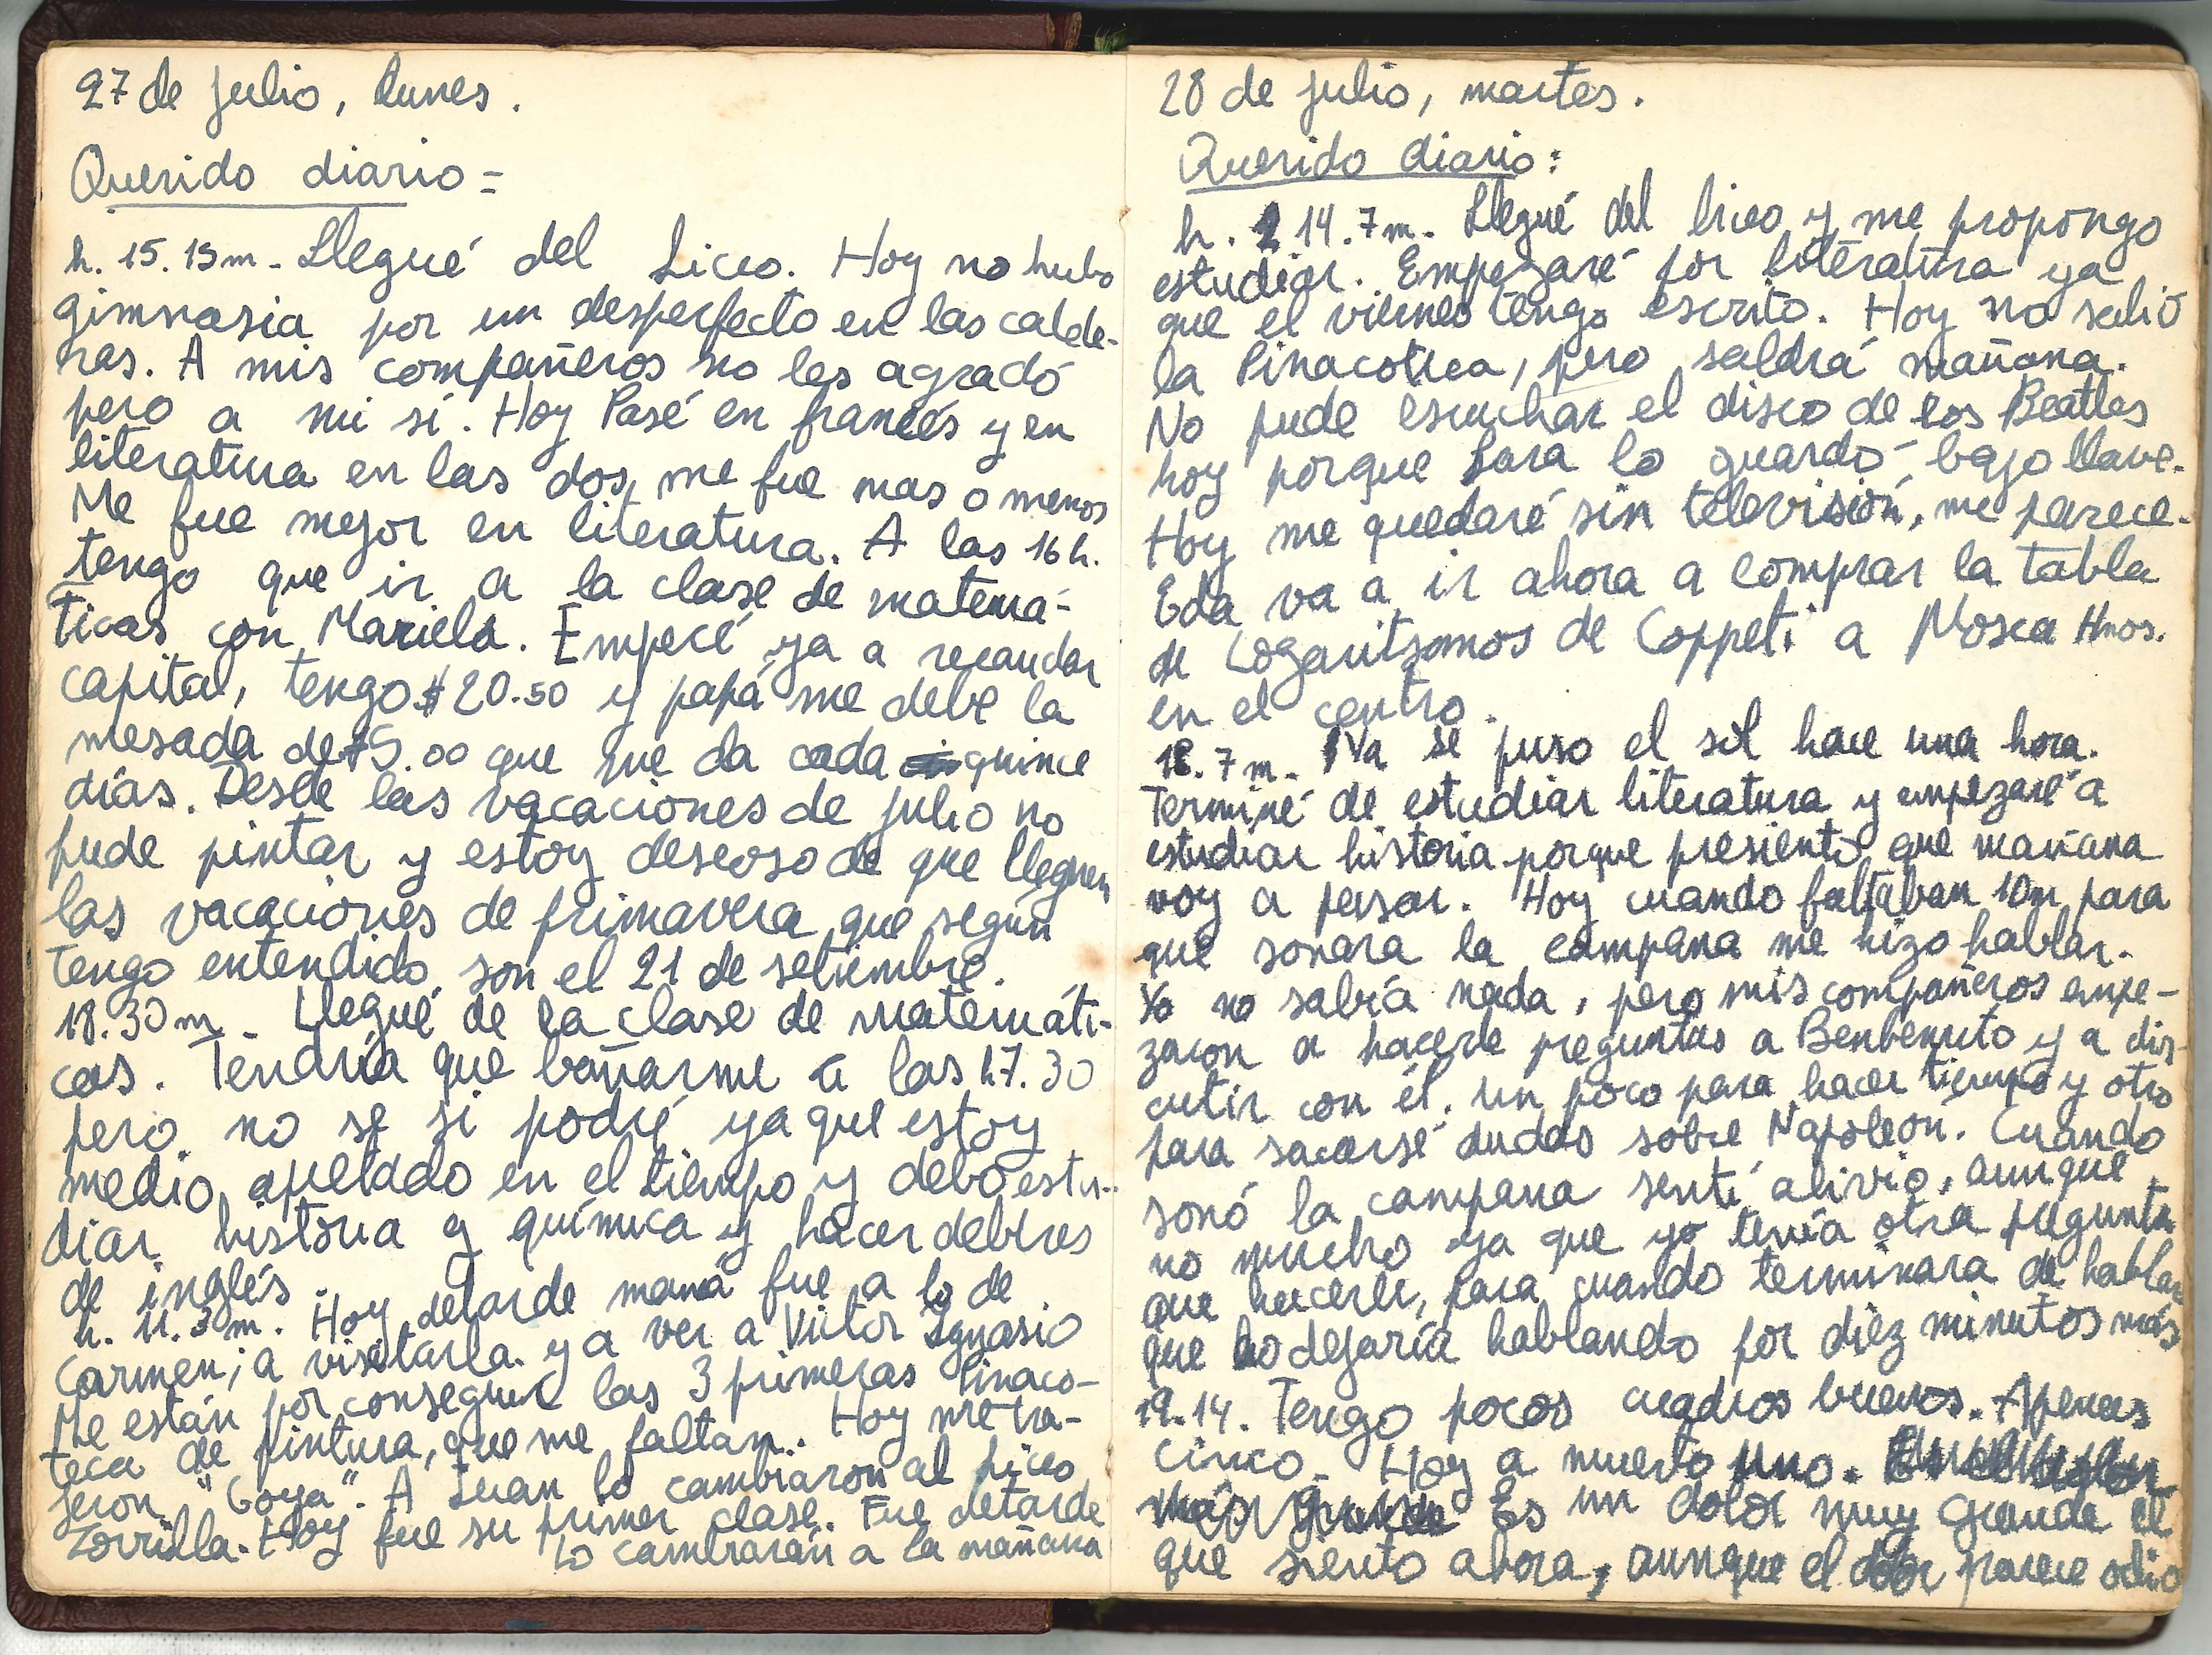 27 de julio, lunes.
Querido diario =
h. 15.15m - Llegué del Liceo. Hoy no hubo
gimnasia por un desperfecto en las calde-
ras. A mis compañeros no les agradó
pero a mi sí. Hoy Pasé en francés y en
literatura en las dos, me fue mas o menos
Me fue mejor en literatura. A las 16 h.
tengo que ir a la clase de matemá-
ticas con Mariela. Empecé ya a recaudar
capital, tengo $20.50 y papá me debe la
mesada de $5.00 que me da cada quince
días. Desde las vacaciones de julio no
pude pintar y estoy deseoso de que lleguen
las vacaciones de primavera que según
tengo entendido son el 21 de setiembre.
18.30 m - Llegué de la clase de matemáti-
cas. Tendría que bañarme a las h7.30
pero no se si podré ya que estoy
medio apretado en el tiempo y debo estu-
diar historia y química y hacer deberes
de inglés.
h. 11.30m. Hoy detarde mamá fue a lo de
Carmen; a visitarla y a ver a Victor Ignasio
Me están por conseguir las 3 primeras Pinaco-
teca de pintura, que me faltan. Hoy me tra-
jeron "Goya". A Juan lo cambiaron al liceo
Zorrilla. Hoy fue su primer clase. Fue detarde
Lo cambiarán a la mañana
28 de julio, martes.
Querido diario:
h. 14.7m. Llegué del liceo y me propongo
estudiar. Empezaré por literatura ya
que el viernes tengo escrito. Hoy no salió
la Pinacoteca, pero saldrá mañana.
No pude escuchar el disco de los Beatles
hoy porque Sara lo guardó bajo llave.
Hoy me quedaré sin televisión, me parece.
Eda va a ir ahora a comprar la tabla
de Logaritmos de Coppeti a Mosca Hnos.
en el centro.
18.7m. Ya se puso el sol hace una hora.
Terminé de estudiar literatura y empezaré a
estudiar historia porque presiento que mañana
voy a pasar. Hoy cuando faltaban 10m para
que sonara la campana me hizo hablar.
Yo no sabía nada, pero mis compañeros empe-
zaron a hacerle preguntas a Benbenuto y a dis-
cutir con él. un poco para hacer tiempo y otro
para sacarse dudas sobre Napoleón. Cuando
sonó la campana sentí alivio, aunque
no mucho ya que yo tenía otra pregunta
que hacerle, para cuando terminara de hablar
que lo dejaría hablando por diez minutos más
19.14. Tengo pocos cuadros buenos. Apenas
cinco. Hoy a muerto uno.
más Es un dolor muy grande el
que siento ahora, aunque el dolor parece odio